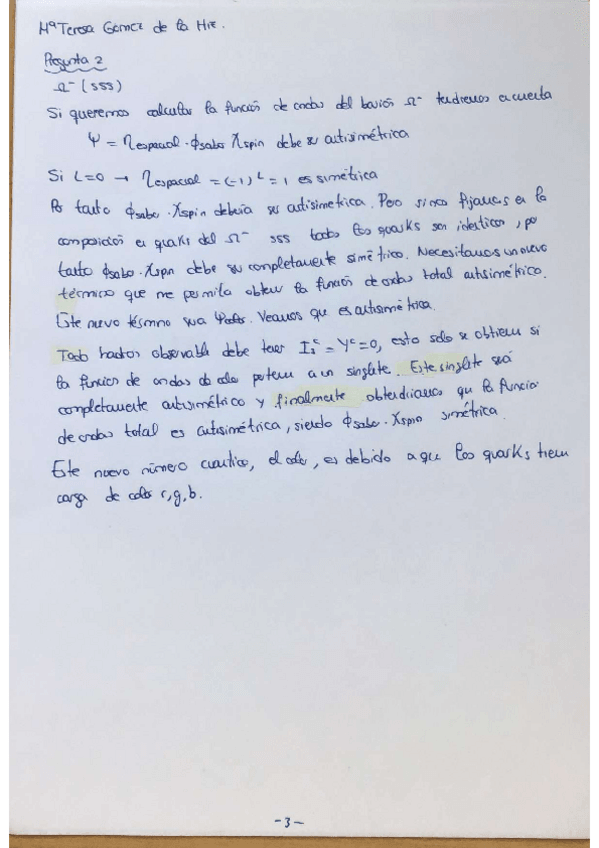 Mª Teresa Gómez de la Hiz.
Pregunta 2
Ω⁻ (sss)
Si queremos calcular la función de ondas del barión Ω⁻ tendremos en cuenta
Ψ = η espacial · ϕ sabor χ spin debe ser antisimétrica
Si L=0 → η espacial = (-1)^L = 1 es simétrica
Por tanto ϕ sabor · χ spin debería ser antisimétrica. Pero si nos fijamos en la
composición en quarks del Ω⁻ sss todos los quarks son identicos, por
tanto ϕ sabor · χ spin debe ser completamente simétrico. Necesitamos un nuevo
término que me permita obtener la función de ondas total antisimétrico.
Este nuevo término sera Ψ color. Veamos que es antisimétrica.
Todo hadrón observable debe tener I₃ᶜ = Yᶜ = 0, esto solo se obtiene si
la función de ondas de color pertenece a un singlete. Este singlete será
completamente antisimétrico y finalmente obtendriamos que la función
de ondas total es antisimétrica, siendo ϕ sabor · χ spin simétrica.
Este nuevo número cuantico, el color, es debido a que los quarks tienen
carga de color r,g,b.
-3-